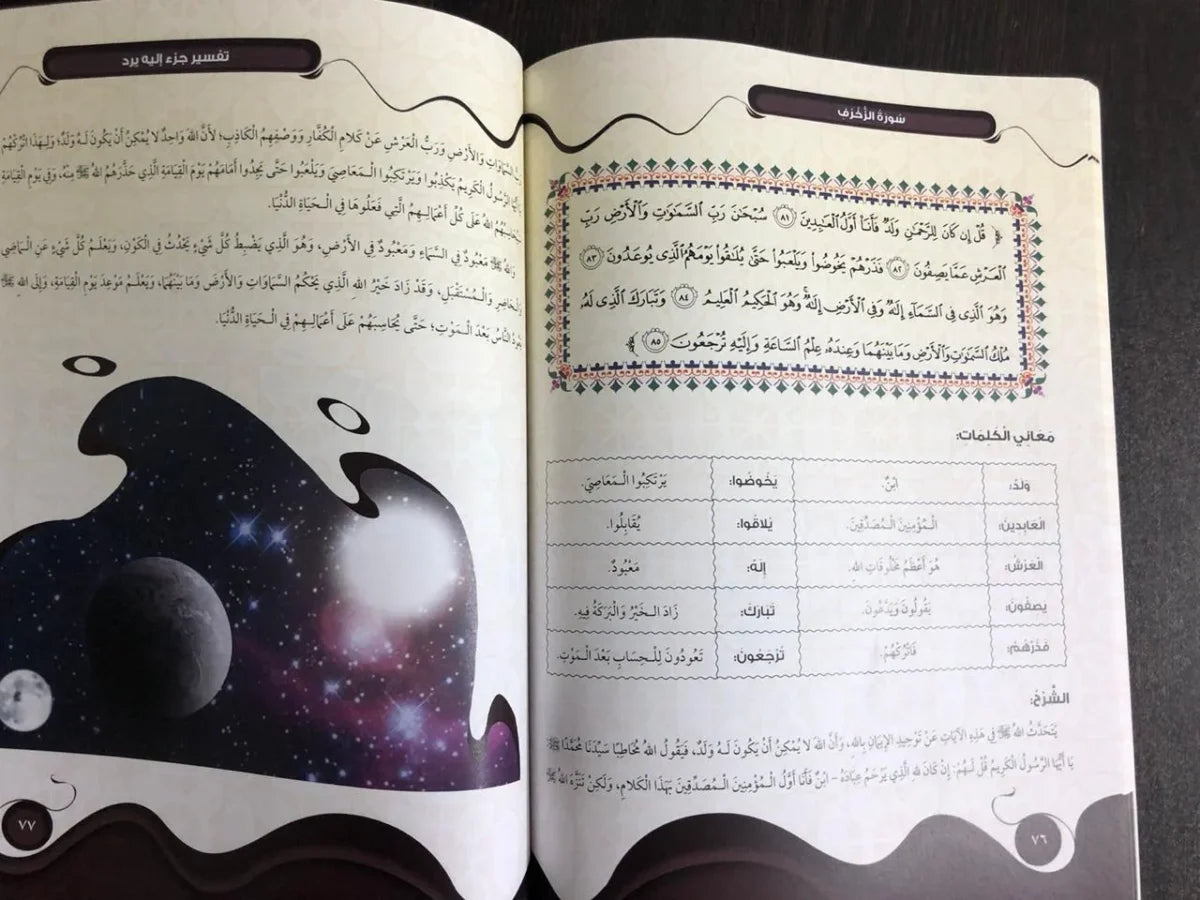 سُورَةُ الزُّخْرُفِ
﴿ قُلْ إِن كَانَ لِلرَّحْمَٰنِ وَلَدٌ فَأَنَا۠ أَوَّلُ ٱلْعَٰبِدِينَ ٨١ سُبْحَٰنَ رَبِّ ٱلسَّمَٰوَٰتِ وَٱلْأَرْضِ رَبِّ
ٱلْعَرْشِ عَمَّا يَصِفُونَ ٨٢ فَذَرْهُمْ يَخُوضُوا۟ وَيَلْعَبُوا۟ حَتَّىٰ يُلَٰقُوا۟ يَوْمَهُمُ ٱلَّذِى يُوعَدُونَ ٨٣
وَهُوَ ٱلَّذِى فِى ٱلسَّمَآءِ إِلَٰهٌ وَفِى ٱلْأَرْضِ إِلَٰهٌ ۚ وَهُوَ ٱلْحَكِيمُ ٱلْعَلِيمُ ٨٤ وَتَبَارَكَ ٱلَّذِى لَهُۥ
مُلْكُ ٱلسَّمَٰوَٰتِ وَٱلْأَرْضِ وَمَا بَيْنَهُمَا وَعِندَهُۥ عِلْمُ ٱلسَّاعَةِ وَإِلَيْهِ تُرْجَعُونَ ٨٥ ﴾
مَعَانِي الْكَلِمَاتِ:
وَلَدٌ: ابْنٌ. يَخُوضُوا: يَرْتَكِبُوا الْـمَعَاصِيَ.
الْعَابِدِينَ: الْـمُؤْمِنِينَ الْـمُصَدِّقِينَ. يُلَاقُوا: يُقَابِلُوا.
الْعَرْشِ: هُوَ أَعْظَمُ مَخْلُوقَاتِ اللهِ. إِلَهٌ: مَعْبُودٌ.
يَصِفُونَ: يَقُولُونَ وَيَدَّعُونَ. تَبَارَكَ: زَادَ الْـخَيْرُ وَالْبَرَكَةُ فِيهِ.
فَذَرْهُمْ: فَاتْرُكْهُمْ. تُرْجَعُونَ: تَعُودُونَ لِلْحِسَابِ بَعْدَ الْـمَوْتِ.
الشَّرْحُ:
يَتَحَدَّثُ اللهُ ﷻ فِي هَذِهِ الآيَاتِ عَنْ تَوْحِيدِ الإِيمَانِ بِاللهِ، وَأَنَّ اللهَ لَا يُمْكِنُ أَنْ يَكُونَ لَـهُ وَلَدٌ، فَيَقُولُ اللهُ مُخَاطِبًا سَيِّدَنَا مُحَمَّدًا ﷺ:
يَا أَيُّهَا الرَّسُولُ الْكَرِيمُ قُلْ لَـهُمْ: إِنْ كَانَ لِلهِ الَّذِي يَرْحَمُ عِبَادَهُ - ابْنٌ فَأَنَا أَوَّلُ الْـمُؤْمِنِينَ الْـمُصَدِّقِينَ بِهَذَا الْكَلَامِ، وَلَكِنْ تَنَزَّهَ اللهُ ﷻ
٧٦
تفسير جزء إليه يرد
رَبُّ السَّمَاوَاتِ وَالْأَرْضِ وَرَبُّ الْعَرْشِ عَنْ كَلَامِ الْكُفَّارِ وَوَصْفِهِمُ الْكَاذِبِ؛ لأَنَّ اللهَ وَاحِدٌ لَا يُمْكِنُ أَنْ يَكُونَ لَـهُ وَلَدٌ؛ وَلِـهَذَا اتْرُكْهُمْ
يَا أَيُّهَا الرَّسُولُ الْكَرِيمُ يَكْذِبُوا وَيَرْتَكِبُوا الْـمَعَاصِيَ وَيَلْعَبُوا حَتَّى يَجِدُوا أَمَامَهُمْ يَوْمَ الْقِيَامَةِ الَّذِي حَذَّرَهُمُ اللهُ ﷻ مِنْهُ، وَفِي يَوْمِ الْقِيَامَةِ
يُحَاسِبُهُمُ اللهُ عَلَى كُلِّ أَعْمَالِـهِمُ الَّتِي فَعَلُوهَا فِي الْـحَيَاةِ الدُّنْيَا.
وَاللهُ ﷻ مَعْبُودٌ فِي السَّمَاءِ وَمَعْبُودٌ فِي الأَرْضِ، وَهُوَ الَّذِي يَضْبِطُ كُلَّ شَيْءٍ يَحْدُثُ فِي الْكَوْنِ، وَيَعْلَمُ كُلَّ شَيْءٍ عَنِ الْـمَاضِي
وَالْـحَاضِرِ وَالْـمُسْتَقْبَلِ، وَقَدْ زَادَ خَيْرُ اللهِ الَّذِي يَحْكُمُ السَّمَاوَاتِ وَالأَرْضَ وَمَا بَيْنَهُمَا، وَيَعْلَمُ مَوْعِدَ يَوْمِ الْقِيَامَةِ، وَإِلَى اللهِ ﷻ
يَعُودُ النَّاسُ بَعْدَ الْـمَوْتِ؛ حَتَّى يُحَاسِبَهُمْ عَلَى أَعْمَالِـهِمْ فِي الْـحَيَاةِ الدُّنْيَا.
٧٧